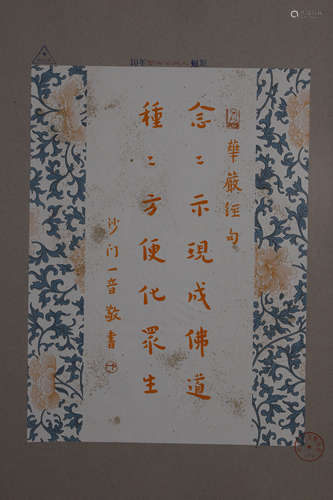 華嚴經句
念〻示現成佛道
種〻方便化眾生
沙门一音敬書